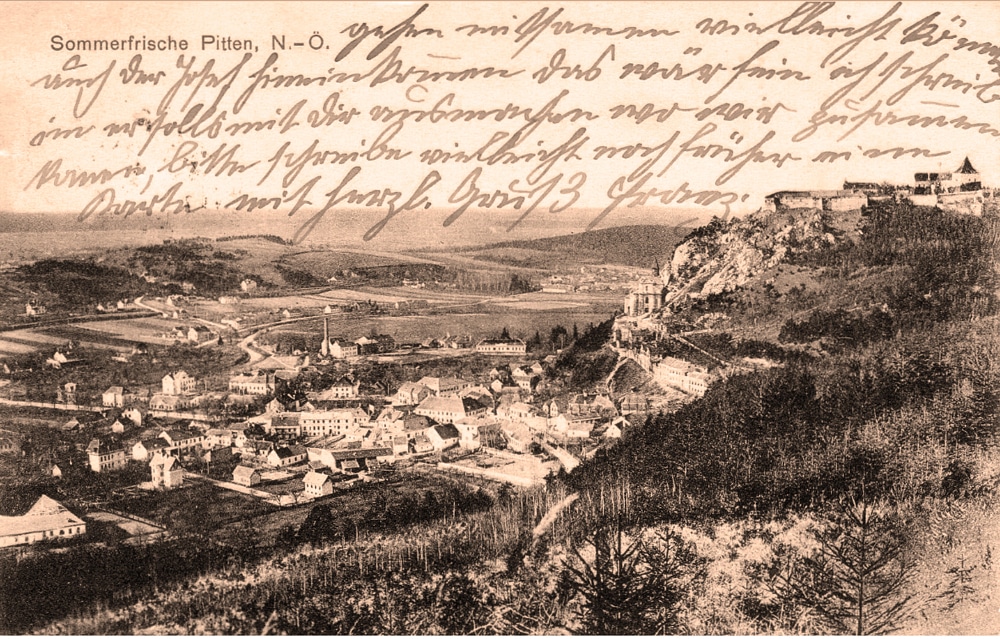 Sommerfrische Pitten, N.-Ö.
gehen mitsamen vielleicht könn
auch der Josef hineinkommen das wär fein ich schreib
im erfolls mit Dir ausmachen wo wir zusammen
kommen, bitte schreibe vielleicht noch früher eine
Karte mit herzl. Gruß Franz.